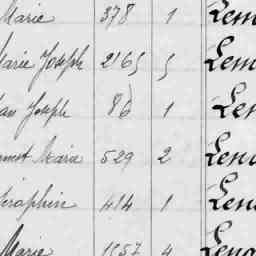 Marie 378 1 Lem
Marie Joseph 2165 5 Lem
Joseph 86 1 Len
Marie 529 2 Leno
Séraphin 414 1 Len
Marie 1057 4 Leno